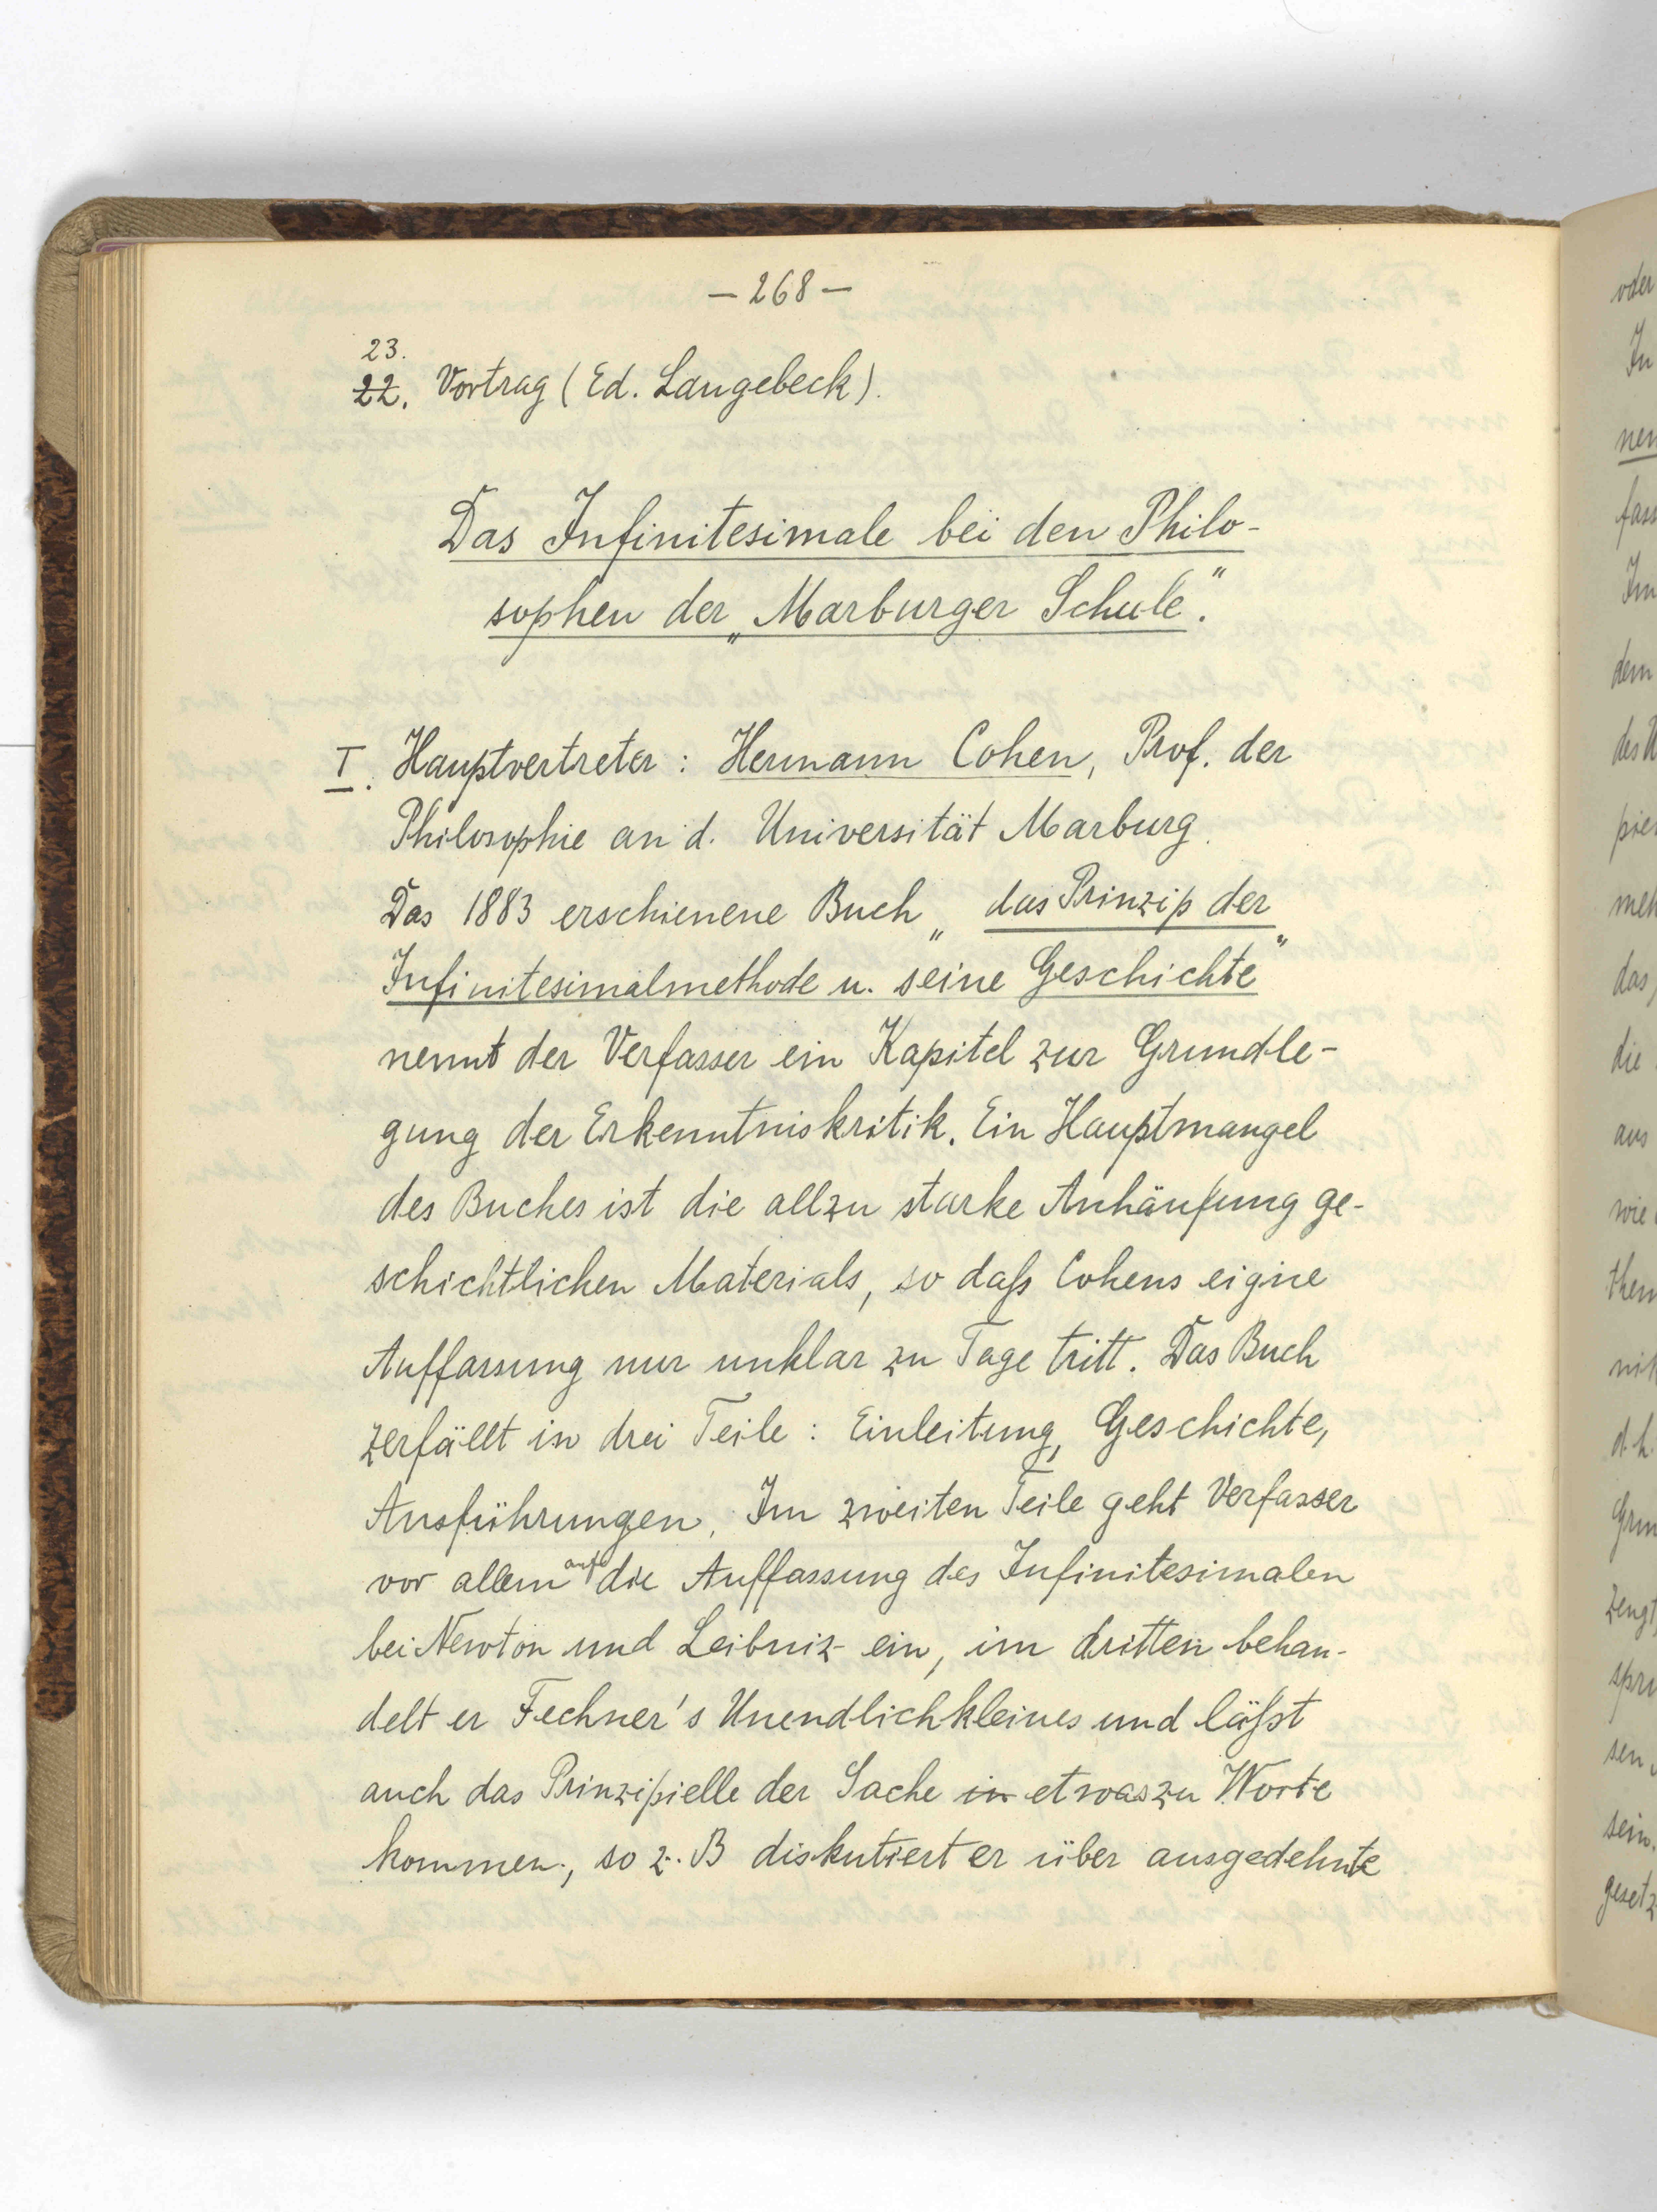 – 268 –
23.
22. Vortrag (Ed. Langebeck).
Das Infinitesimale bei den Philo-
sophen der „Marburger Schule“.
I. Hauptvertreter: Hermann Cohen, Prof. der
Philosophie an d. Universität Marburg.
Das 1883 erschienene Buch „das Prinzip der
Infinitesimalmethode u. seine Geschichte“
nennt der Verfasser ein Kapitel zur Grundle-
gung der Erkenntniskritik. Ein Hauptmangel
des Buches ist die allzu starke Anhäufung ge-
schichtlichen Materials, so daß Cohens eigne
Auffassung nur unklar zu Tage tritt. Das Buch
zerfällt in drei Teile: Einleitung, Geschichte,
Ausführungen. Im zweiten Teile geht Verfasser
vor allem auf die Auffassung des Infinitesimalen
bei Newton und Leibniz ein, im dritten behan-
delt er Fechner's Unendlichkleines und läßt
auch das Prinzipielle der Sache in etwas zu Worte
kommen, so z. B diskutiert er über ausgedehnte
oder
In
dem
das,
die
aus
wie
d. h.
sein.